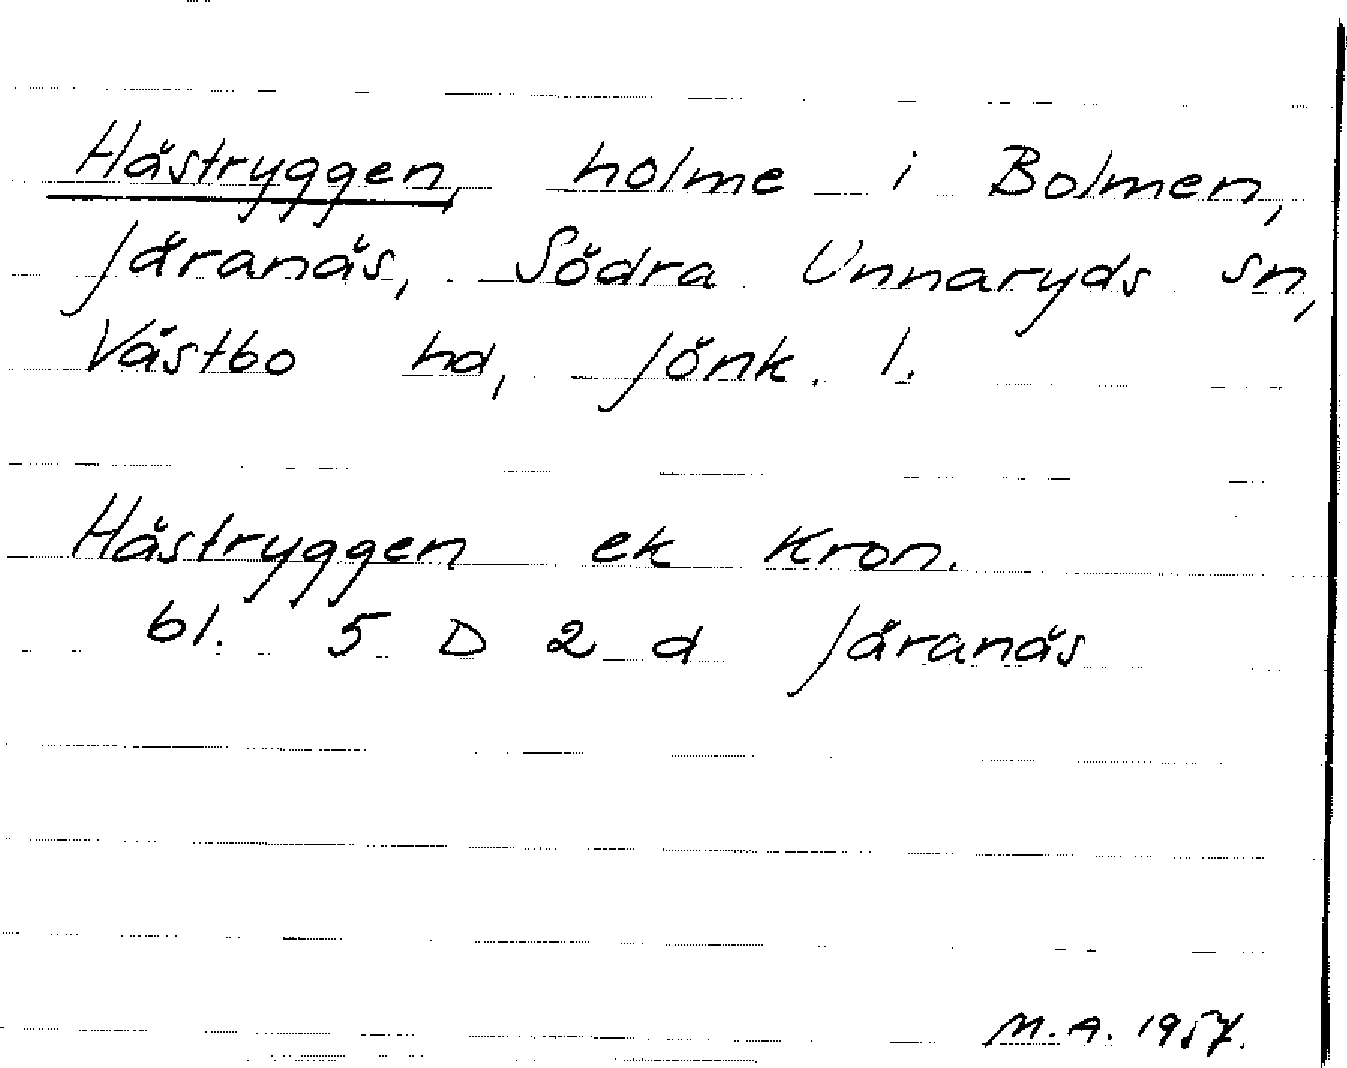 Hästryggen, holme i Bolmen,
Järanäs, Södra Unnaryds sn,
Västbo hd, Jönk. l.
Hästryggen ek Kron.
bl. 5 D 2 d Järanäs
M.A. 1957.